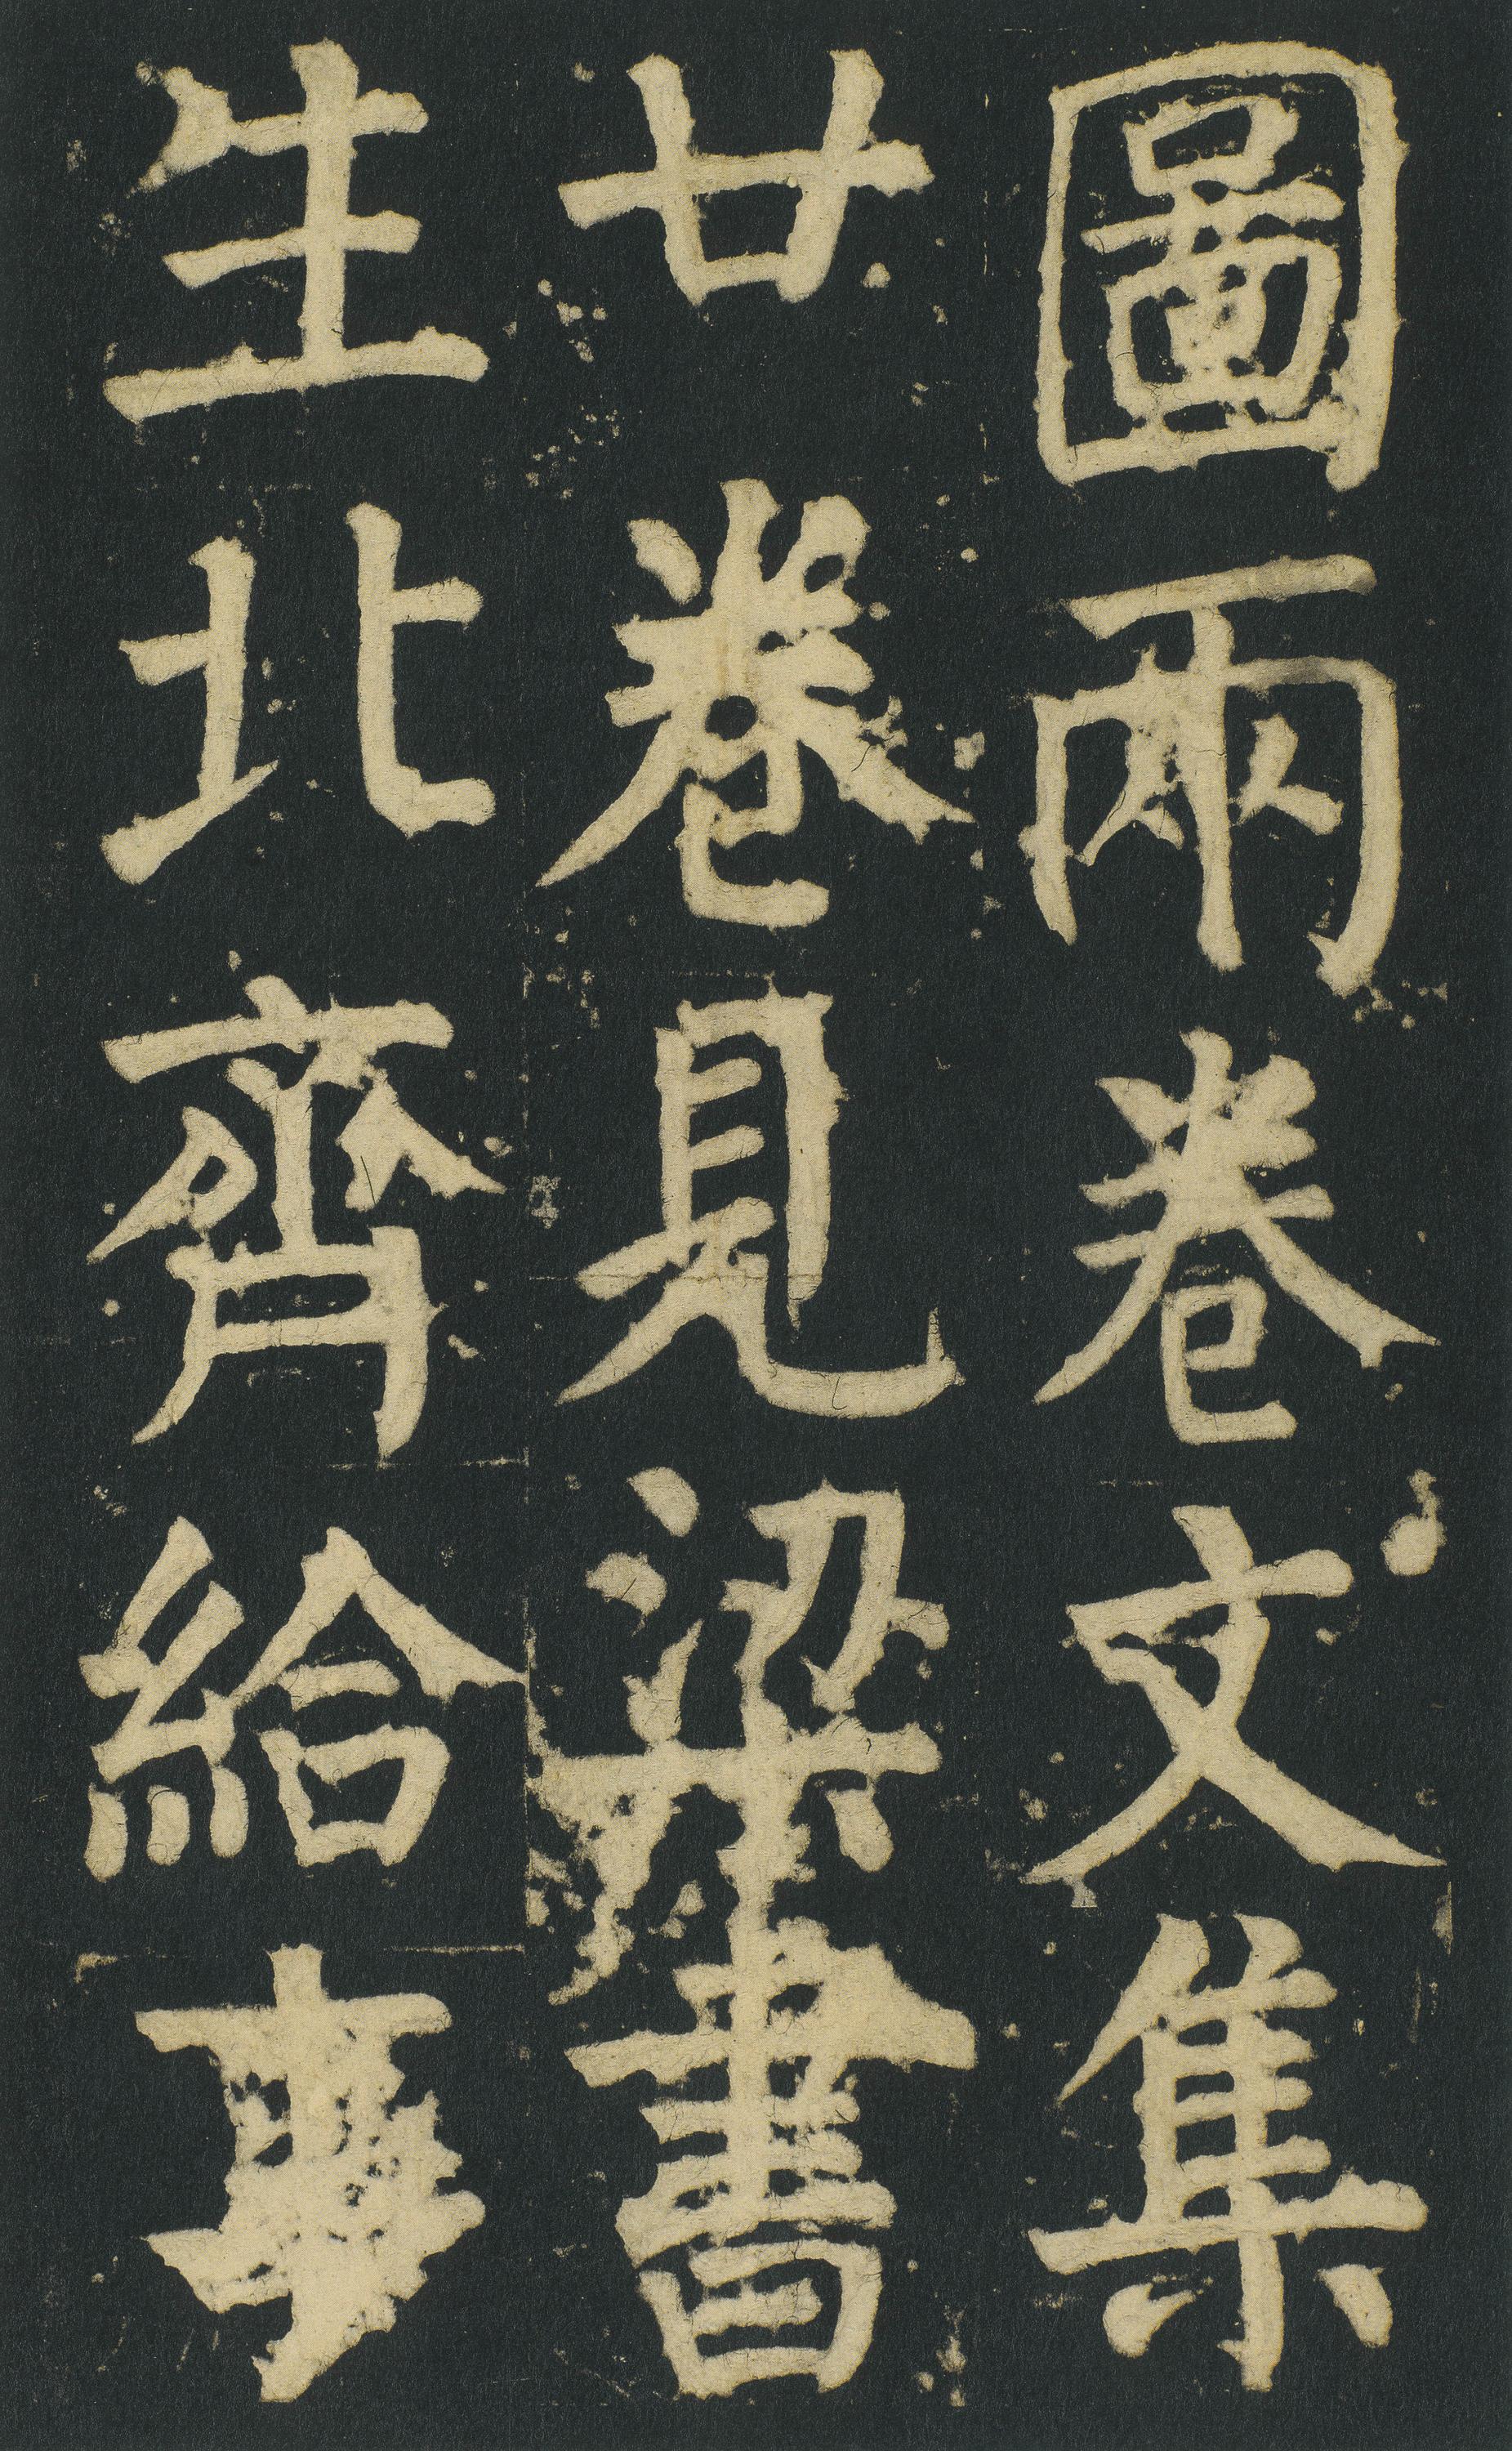 圖兩卷文集
廿卷見梁書
生北齊給事